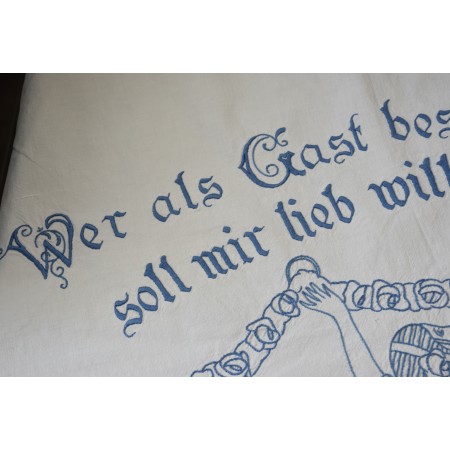 Wer als Gast bes
soll mir lieb will